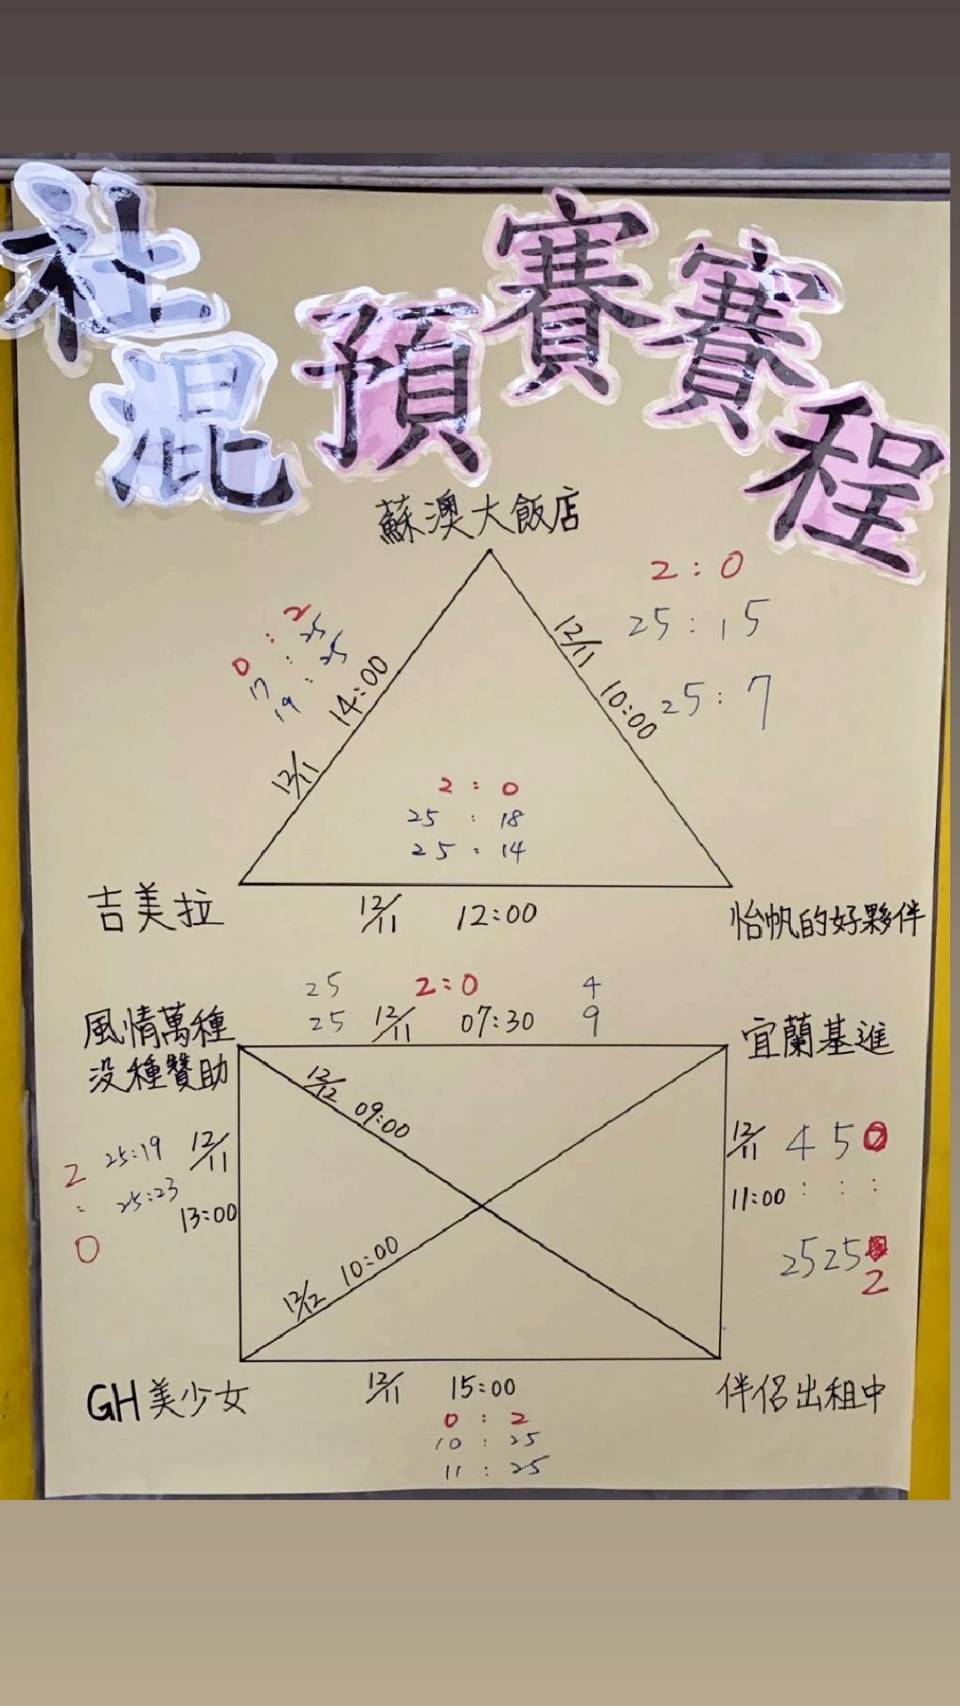 社混預賽賽程
蘇澳大飯店
2:0
25:15
25:7
12/11 10:00
0:2
17:25
19:25
12/11 14:00
2:0
25:18
25:14
吉美拉
12/11 12:00
怡帆的好夥伴
風情萬種
沒種贊助
25 2:0 4
25 12/11 07:30 9
宜蘭基進
12/12 09:00
2:0
25:19
25:23
12/11
13:00
12/11
11:00
4 5 0
: : :
25 25 2
12/12 10:00
GH美少女
12/11 15:00
0:2
10:25
11:25
伴侶出租中